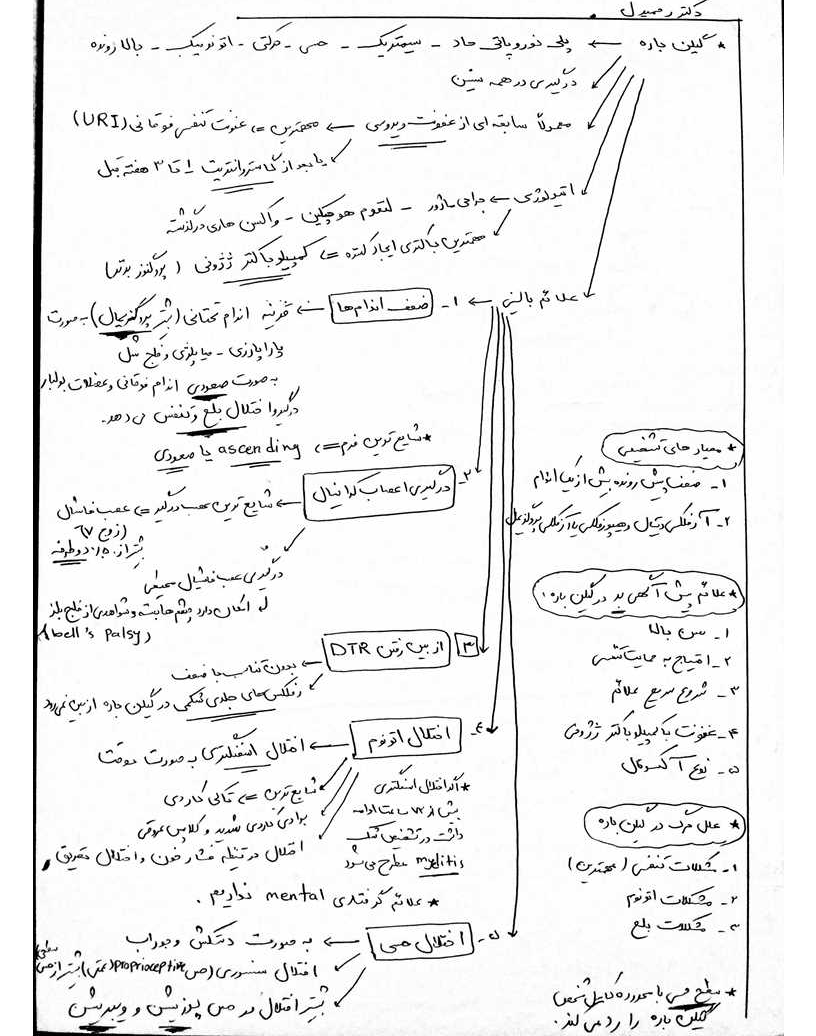 دکتر رحمیدل
* گیلن باره ← پلی نوروپاتی حاد - سیمتریک - حسی - حرکتی - اتونومیک - بالارونده
درگیری در همه سنین
معمولاً سابقه ای از عفونت ویروسی ← مهمترین => عفونت تنفس فوقانی (URI)
یا بعد از گاستروانتریت ۱ تا ۳ هفته قبل
اتیولوژی ← جراحی ماژور - لنفوم هوچکین - واکسن هاری درگذشته
مهمترین باکتری ایجاد کننده => کمپیلوباکتر ژژونی (پروگنوز بدتر)
علائم بالینی ← ۱- ضعف اندام‌ها ← قرینه اندام تحتانی (بیشتر پروگزیمال) به صورت
پاراپارزی - یا پلژی و فلج شل
به صورت صعودی اندام فوقانی و عضلات بولبار
درگیر و اختلال بلع و تنفس می دهد.
* شایع ترین فرم => ascending یا صعودی
۲- درگیری اعصاب کرانیال ← شایع ترین عصب درگیر => عصب فاشیال
(زوج ۷)
بیشتر از ۵۰٪ دوطرفه
درگیری عصب فاشیال محیطی
امکان دارد چشم ها بسته و شواهدی از فلج بلز
(bell's Palsy)
۳ از بین رفتن DTR ← بدون تناسب با ضعف
رفلکس‌های جلدی شکمی در گیلن باره از بین نمی رود
۴- اختلال اتونوم ← اختلال اسفنکتری به صورت موقت
شایع ترین => تاکی کاردی
برادی کاردی شدید و کلاپس عروقی
اختلال در تنظیم فشار خون و اختلال تعریق
* اگر اختلال اسفنکتری
بیش از ۷۲ ساعت ادامه
داشت در تشخیص شک
myelitis مطرح می شود
* علائم گرفتاری mental نداریم.
۵- اختلال حسی ← به صورت دستکش و جوراب
اختلال سنسوری (حس proprioceptive) (عمقی) بیشتر از حس سطحی
بیشتر اختلال در حس پوزیشن و ویبریشن
* معیارهای تشخیصی
۱- ضعف پیش رونده بیش از یک اندام
۲- آرفلکسی دیستال و هیپورفلکسی یا آرفلکسی پروگزیمال
* علائم پیش آگهی بد در گیلن باره:
۱- سن بالا
۲- احتیاج به حمایت تنفسی
۳- شروع سریع علائم
۴- عفونت با کمپیلوباکتر ژژونی
۵- نوع آکسونال
* علل مرگ در گیلن باره
۱- مشکلات تنفسی (مهمترین)
۲- مشکلات اتونوم
۳- مشکلات بلع
* سطح حسی با محدوده کاملاً مشخص
گیلن باره را رد می کند.